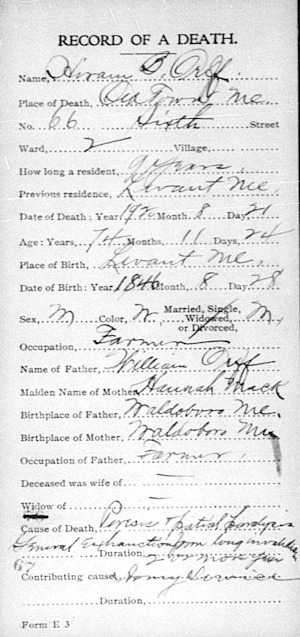 RECORD OF A DEATH.
Name, Hiram B. Orff.
Place of Death, Old Town Me
No. 66 Sixth Street
Ward, 2 Village,
How long a resident, 9 years,
Previous residence, Levant Me,
Date of Death: Year, 192 Month 8 Day 21
Age: Years, 74 Months, 11 Days, 24
Place of Birth, Levant Me,
Date of Birth: Year, 1846 Month, 8 Day, 28
Sex, M Color, W Married, Single, Widowed, or Divorced, M
Occupation, Farmer
Name of Father, William Orff
Maiden Name of Mother, Hannah Mack
Birthplace of Father, Waldoboro Me.
Birthplace of Mother, Waldoboro Me
Occupation of Father, Farmer,
Deceased was wife of —
Widow of —
Cause of Death, Partial Paralysis
General Exhaustion from long
Duration, 2 or more
67
Contributing cause,
Duration,
Form E 3